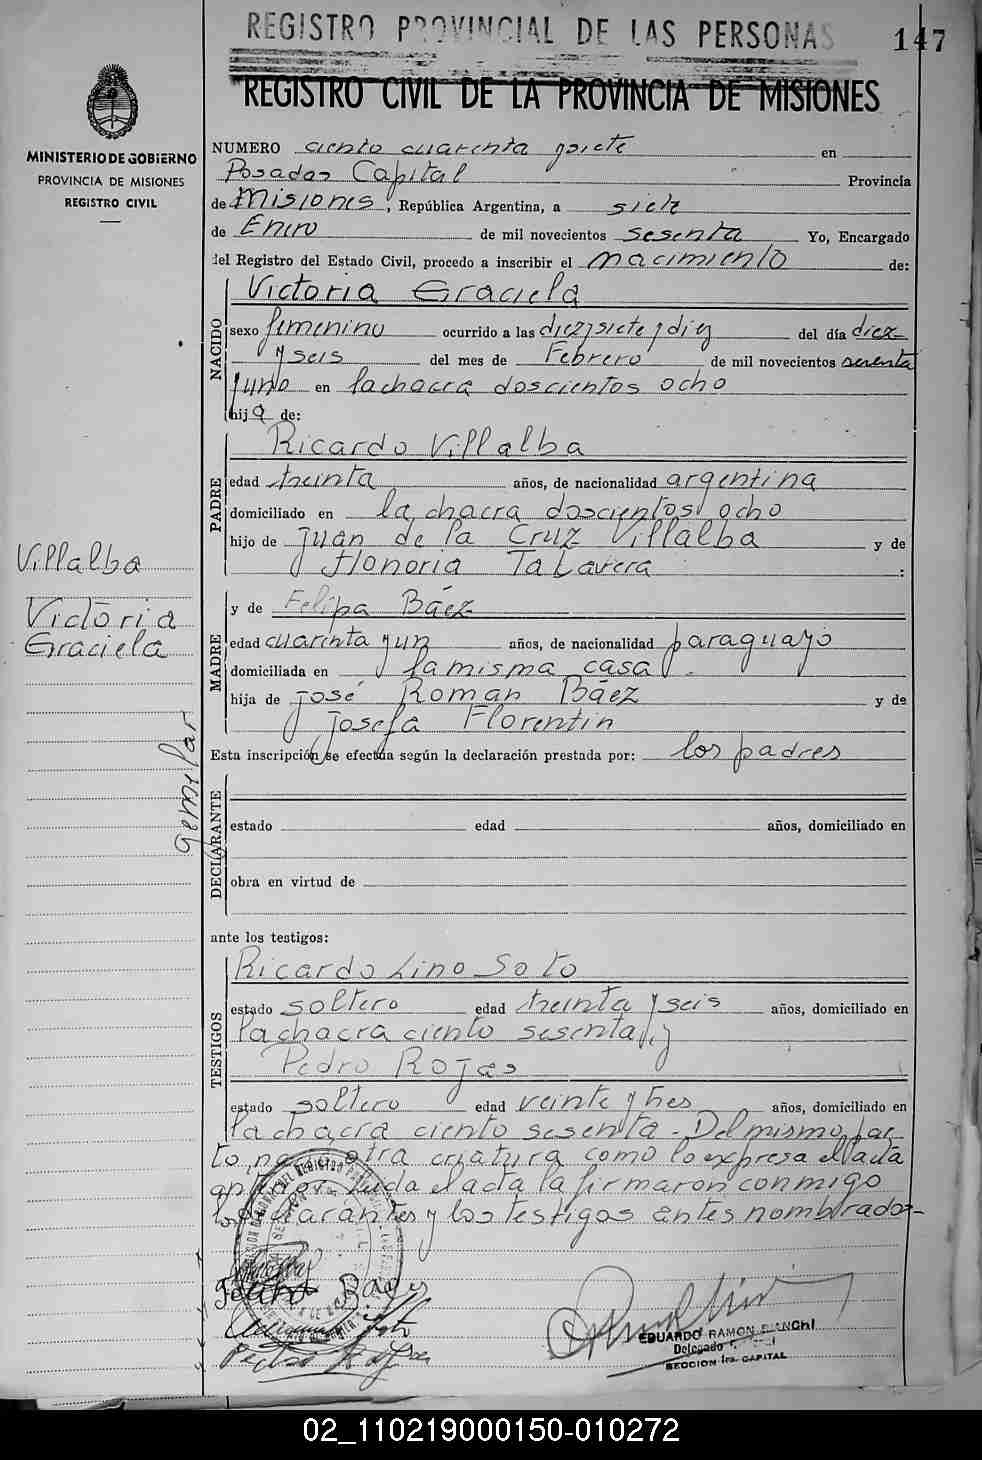 REGISTRO PROVINCIAL DE LAS PERSONAS
147
REGISTRO CIVIL DE LA PROVINCIA DE MISIONES
MINISTERIO DE GOBIERNO
PROVINCIA DE MISIONES
REGISTRO CIVIL
NUMERO ciento cuarenta y siete en
Posadas Capital Provincia
de Misiones, República Argentina, a siete
de Enero de mil novecientos sesenta Yo, Encargado
del Registro del Estado Civil, procedo a inscribir el nacimiento de:
NACIDO
Victoria Graciela
sexo femenino ocurrido a las diez y siete y diez del día diez
y seis del mes de Febrero de mil novecientos sesenta
y uno en la chacra doscientos ocho
hija de:
PADRE
Ricardo Villalba
edad treinta años, de nacionalidad argentina
domiciliado en la chacra doscientos ocho
hijo de Juan de la Cruz Villalba y de
Honoria Talavera :
Villalba
Victoria
Graciela
gemelar
MADRE
y de Felipa Báez
edad cuarenta y un años, de nacionalidad paraguayo
domiciliada en la misma casa
hija de José Roman Báez y de
Josefa Florentin
Esta inscripción se efectúa según la declaración prestada por: los padres
DECLARANTE
estado edad años, domiciliado en
obra en virtud de
ante los testigos:
TESTIGOS
Ricardo Lino Soto
estado soltero edad treinta y seis años, domiciliado en
la chacra ciento sesenta, y
Pedro Rojas
estado soltero edad veinte y tres años, domiciliado en
la chacra ciento sesenta - Del mismo par-
to, otra criatura como lo expresa el acta
el acta la firmaron conmigo
los y los testigos antes nombrados-
Felipa Baes
Pedro Rojas
EDUARDO RAMON BIANCHI
Delegado
SECCION 1ra. CAPITAL
02_110219000150-010272